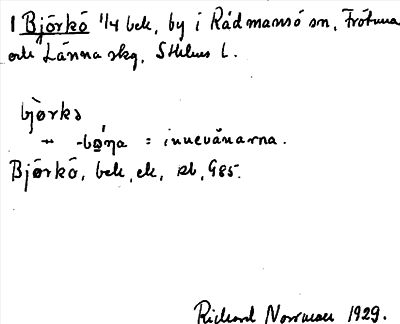 1 Björkö 1/4 bek, by i Rådmansö sn, Frötuna
och Länna skg, Sthlms l.
bjòrkə
" -bǫ́ηa = innevånarna.
Björkö, bek, ek, rb, G85.
Richard Norrman 1929.